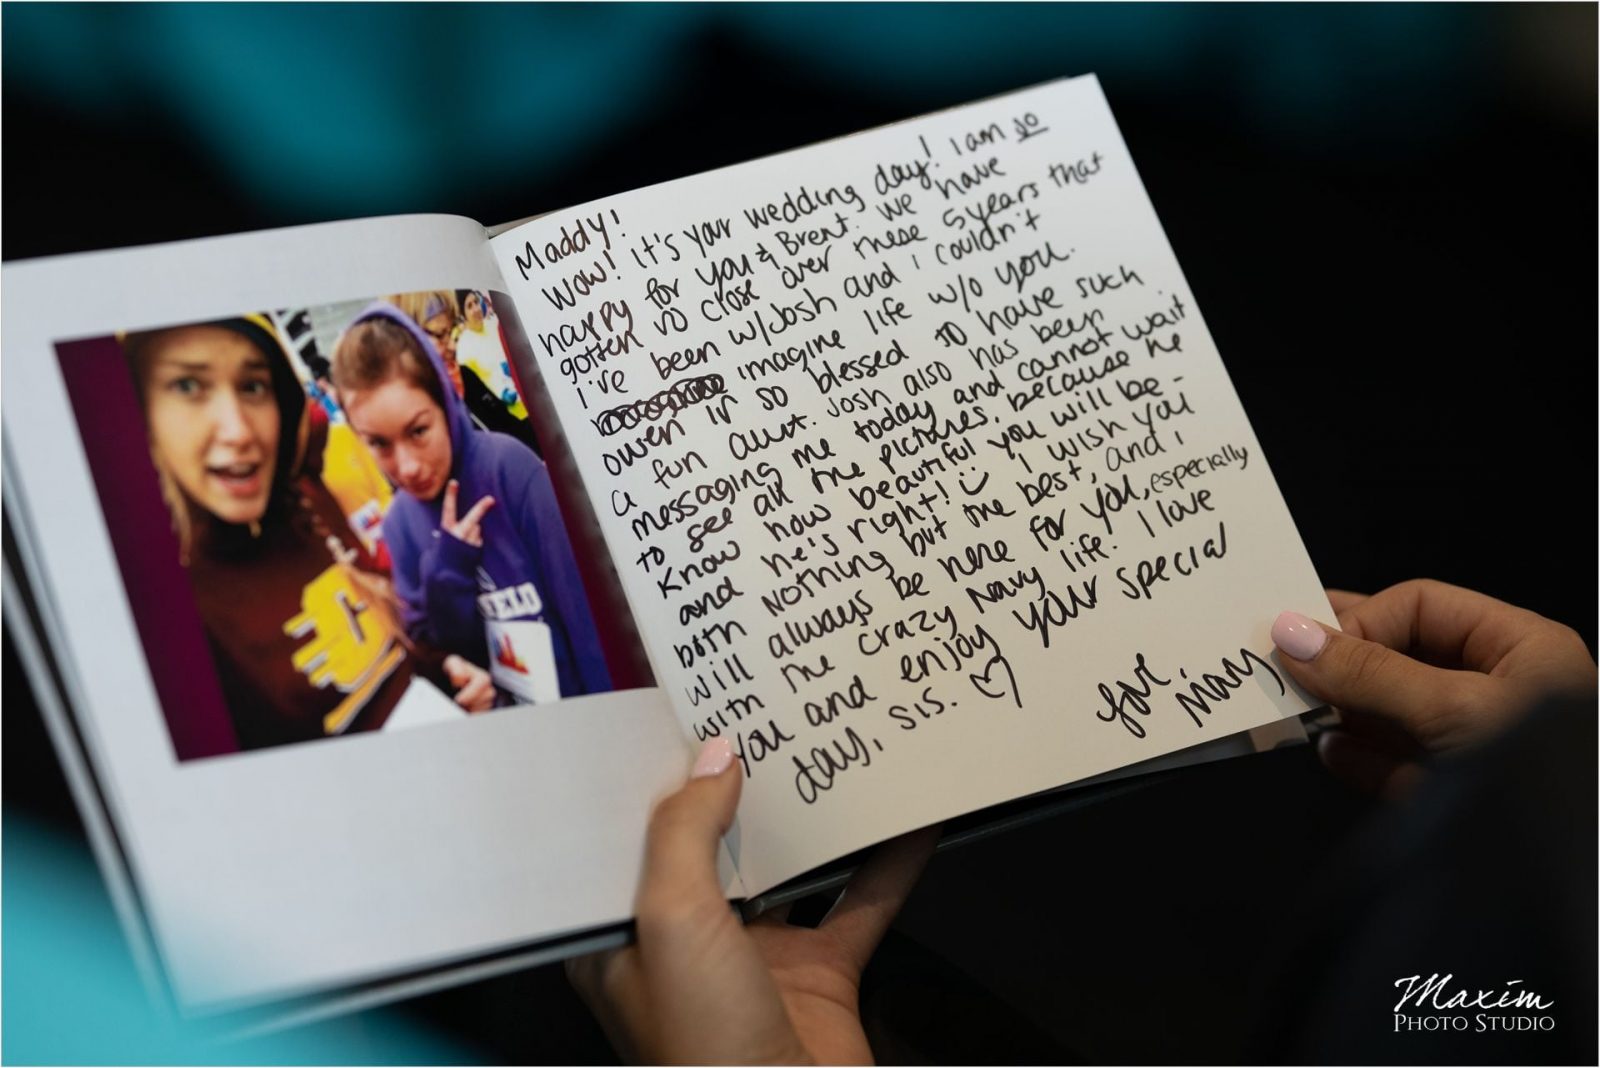 Maddy!
Wow! It's your wedding day! I am so
happy for you & Brent. We have
gotten so close over these 5 years that
I've been w/Josh and I couldn't
imagine life w/o you.
Owen is so blessed to have such
a fun aunt. Josh also has been
messaging me today and cannot wait
to see all the pictures. Because he
know how beautiful you will be -
and he's right! I wish you
both nothing but the best, and I
will always be here for you, especially
with the crazy Navy life. I love
you and enjoy your special
day, sis. ♡
Love
Mary
Maxim
PHOTO STUDIO